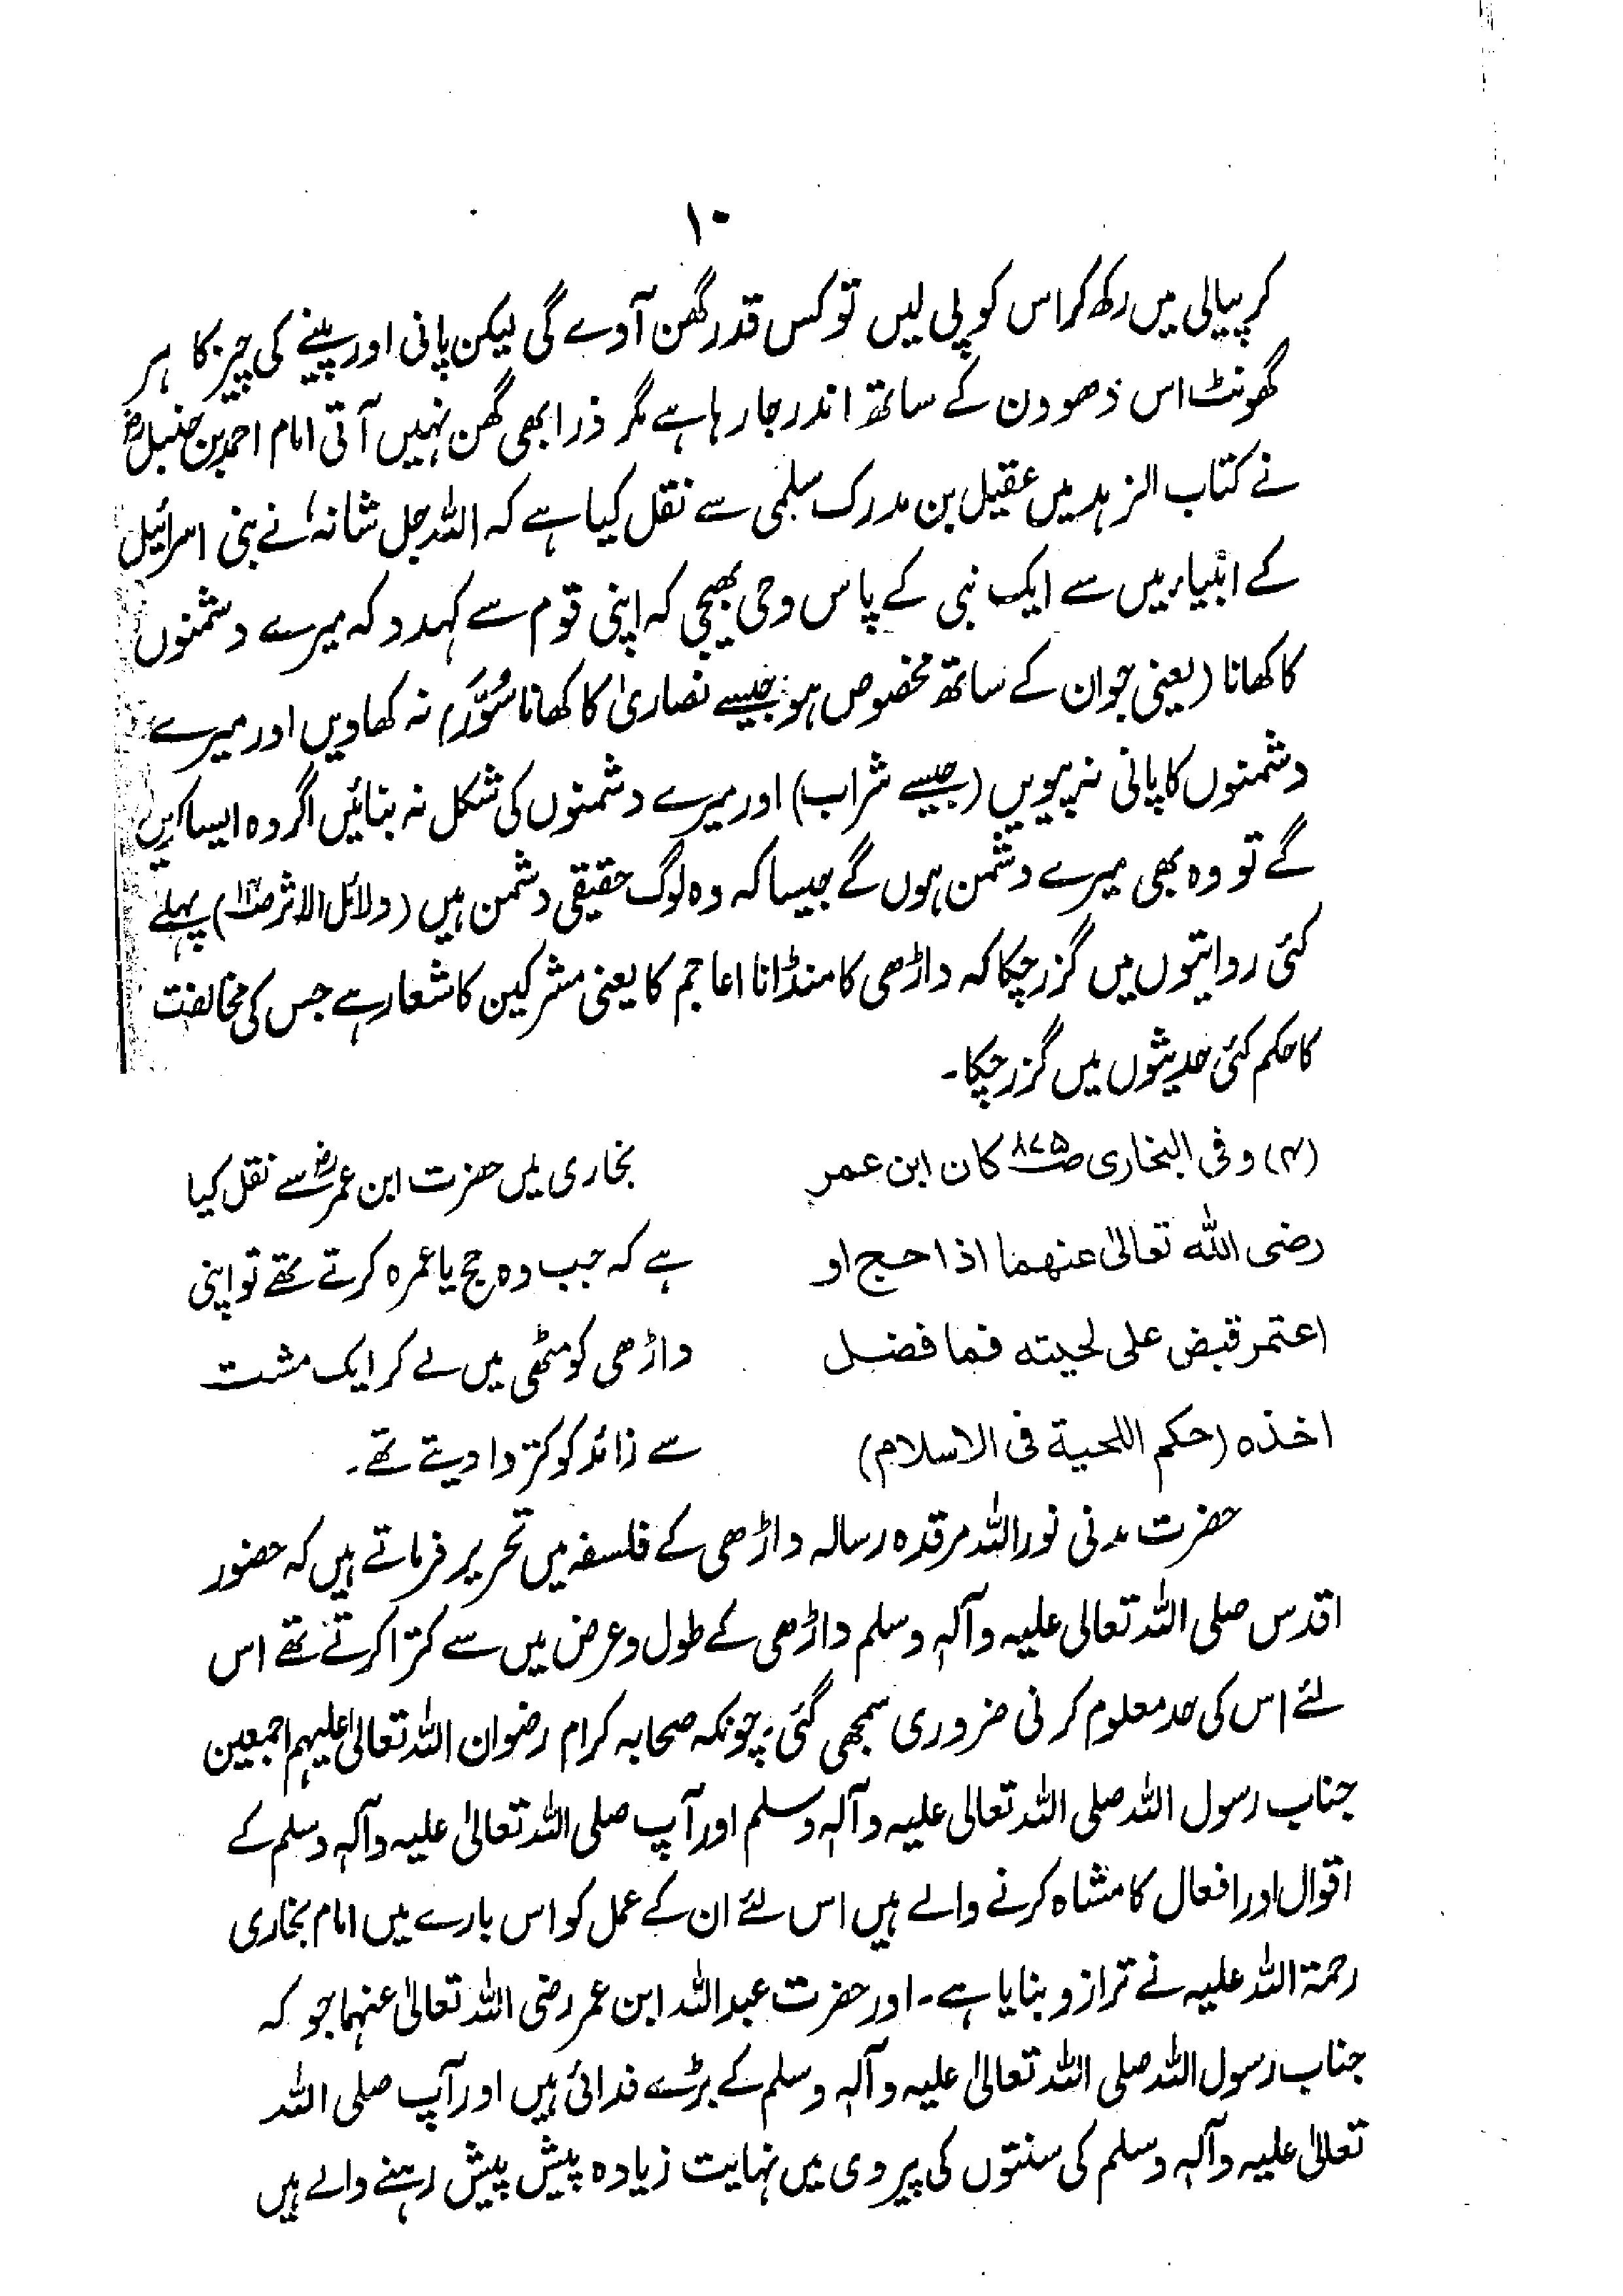 ۱۰
کر پیالی میں رکھ کر اس کو پی لیں تو کس قدر گھن آوے گی لیکن پانی اور پینے کی چیز کا ہر
گھونٹ اس دھوون کے ساتھ اندر جا رہا ہے مگر ذرا بھی گھن نہیں آتی امام احمد بن حنبلؒ
نے کتاب الزہد میں عقیل بن مدرک سلمی سے نقل کیا ہے کہ اللہ جل شانہٗ نے بنی اسرائیل
کے انبیاء میں سے ایک نبی کے پاس وحی بھیجی کہ اپنی قوم سے کہدو کہ میرے دشمنوں
کا کھانا (یعنی جو ان کے ساتھ مخصوص ہو جیسے نصاریٰ کا کھانا سُوَّر) نہ کھاویں اور میرے
دشمنوں کا پانی نہ پیویں (جیسے شراب) اور میرے دشمنوں کی شکل نہ بنائیں اگر وہ ایسا کریں
گے تو وہ بھی میرے دشمن ہوں گے جیسا کہ وہ لوگ حقیقی دشمن ہیں (دلائل الاثر) پہلے
کئی روایتوں میں گزر چکا کہ داڑھی کا منڈانا اعاجم کا یعنی مشرکین کا شعار ہے جس کی مخالفت
کا حکم کئی حدیثوں میں گزر چکا۔
(۴) و فی البخاری ص۸۷۵ کان ابن عمر
رضی الله تعالیٰ عنهما اذا حج او
اعتمر قبض علی لحیته فما فضل
اخذه (حکم اللحیة فی الاسلام)
بخاری میں حضرت ابن عمرؓ سے نقل کیا
ہے کہ جب وہ حج یا عمرہ کرتے تھے تو اپنی
داڑھی کو مٹھی میں لے کر ایک مشت
سے زائد کو کتروا دیتے تھے۔
حضرت مدنی نور اللہ مرقدہ رسالہ داڑھی کے فلسفہ میں تحریر فرماتے ہیں کہ حضور
اقدس صلی اللہ تعالی علیہ وآلہٖ وسلم داڑھی کے طول و عرض میں سے کترا کرتے تھے اس
لئے اس کی حد معلوم کرنی ضروری سمجھی گئی، چونکہ صحابہ کرام رضوان اللہ تعالیٰ علیہم اجمعین
جناب رسول اللہ صلی اللہ تعالی علیہ وآلہٖ وسلم اور آپ صلی اللہ تعالیٰ علیہ وآلہٖ وسلم کے
اقوال اور افعال کا مشاہ کرنے والے ہیں اس لئے ان کے عمل کو اس بارے میں امام بخاری
رحمۃ اللہ علیہ نے ترازو بنایا ہے۔ اور حضرت عبداللہ ابن عمر رضی اللہ تعالیٰ عنہما جو کہ
جناب رسول اللہ صلی اللہ تعالیٰ علیہ وآلہٖ وسلم کے بڑے فدائی ہیں اور آپ صلی اللہ
تعالیٰ علیہ وآلہٖ وسلم کی سنتوں کی پیروی میں نہایت زیادہ پیش پیش رہنے والے ہیں